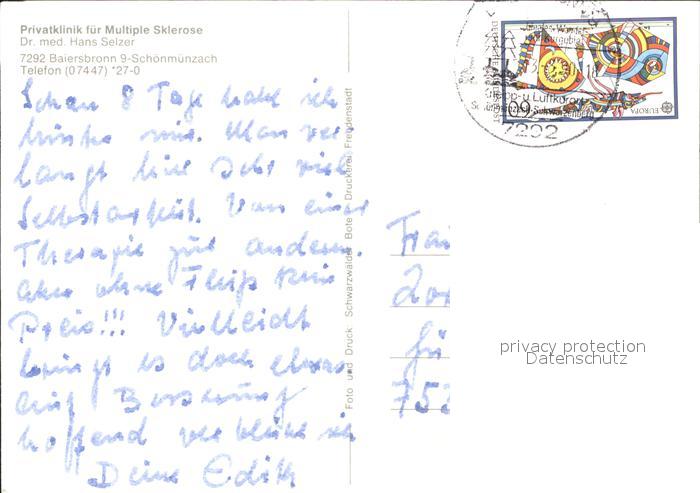 Privatklinik für Multiple Sklerose
Dr. med. Hans Selzer
7292 Baiersbronn 9-Schönmünzach
Telefon (07447) *27-0
Schon 8 Tage habe ich
hinter mir. Man ver
langt hier sehr viel
Selbstarbeit. Von einer
Therapie zur anderen.
aber ohne Fleiß kein
Preis!!! Vielleicht
bringt es doch etwas
auf Besserung
hoffend verbleibe ich
Deine Edith
Foto und Druck Schwarzwälder Bote - Druckerei Freudenstadt
DEUTSCHE BUNDESPOST
EUROPA
Kneipp- u Luftkurort
Schönmünzach-Schwarzenberg
7292
Frau
für
privacy protection
Datenschutz